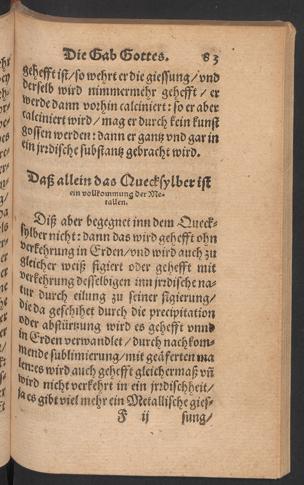 Die Gab Gottes. 83
gehefft ist/ so wehrt er die giessung/ vnd
derselb wird nimmermehr gehefft / er
werde dann vorhin calciniert: so er aber
calciniert wird / mag er durch kein kunst
gossen werden: dann er gantz vnd gar in
ein jrꝛdische substantz gebracht wird.
Daß allein das Quecksylber ist
ein vollkommung der Me-
tallen.
Diß aber begegnet inn dem Queck-
sylber nicht: dann das wird gehefft ohn
verkehrung in Erden/ vnd wird auch zu
gleicher weiß figiert oder gehefft mit
verkehrung desselbigen inn jrꝛdische na-
tur durch eilung zu seiner figierung/
die da geschihet durch die precipitation
oder abstürtzung wird es gehefft vnnd
in Erden verwandlet / durch nachkom-
mende sublimierung/ mit geäferten ma
len: es wird auch gehefft gleichermaß vñ
wird nicht verkehrt in ein jrꝛdischheit/
ja es gibt viel mehr ein Metallische gies-
F ij sung/